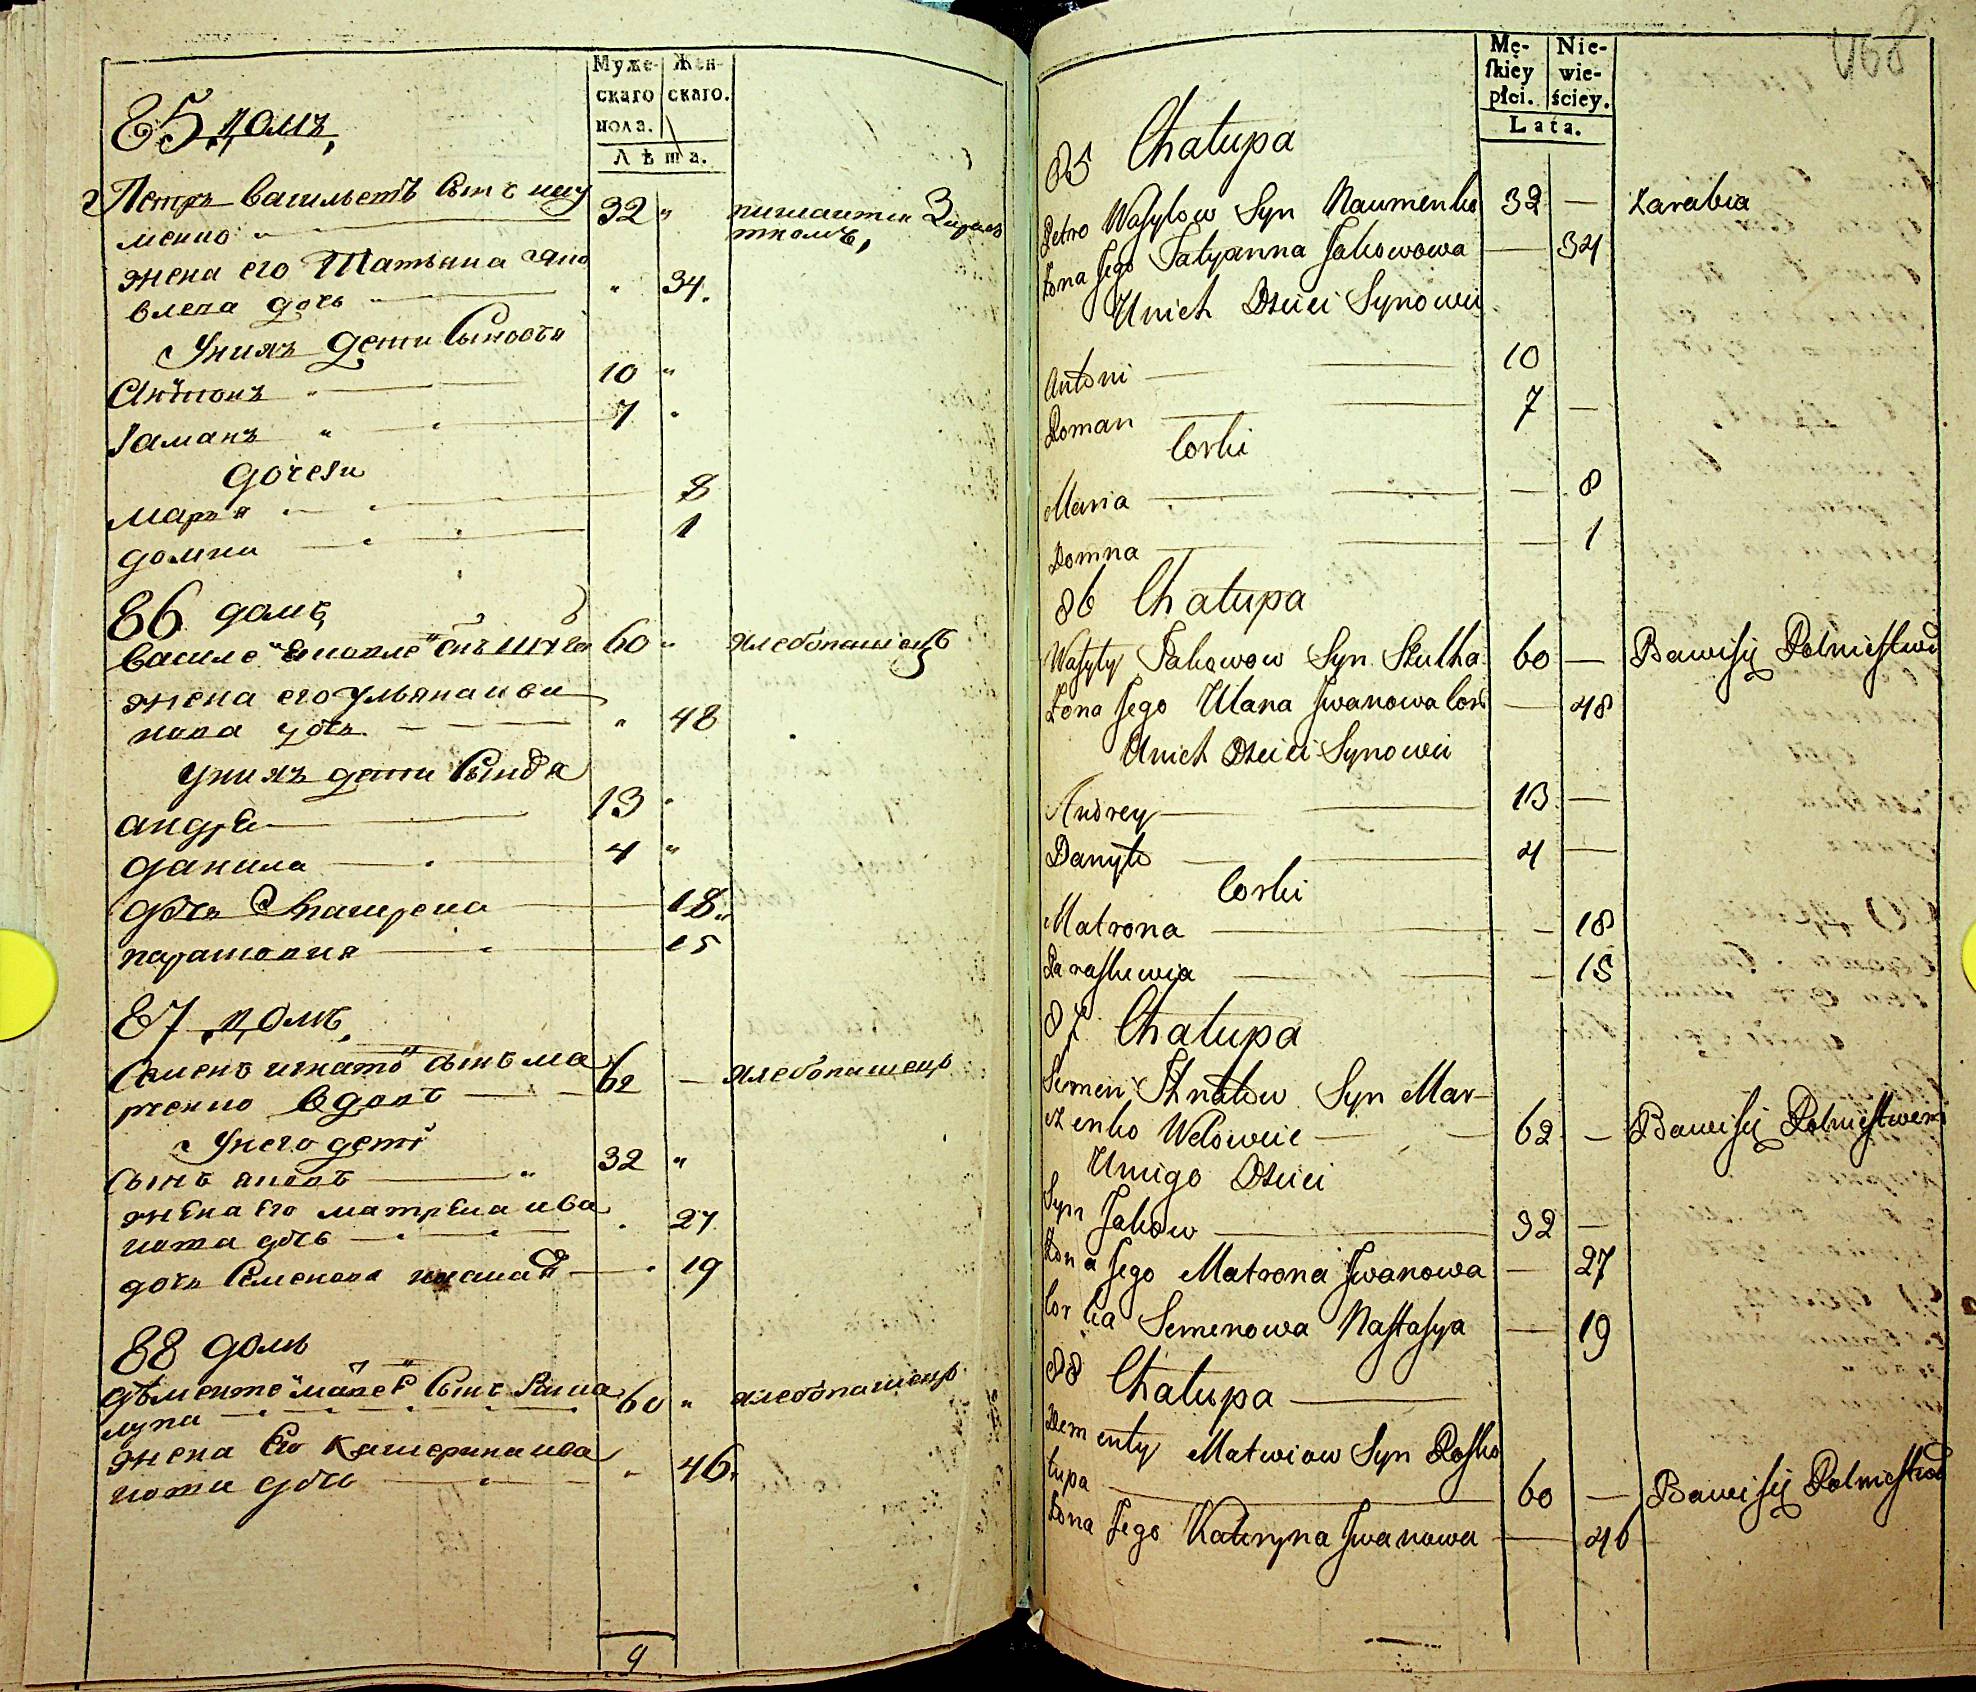 Муже-
скаго
пола.
Жен-
скаго.
Лѣта.
85 домъ,
Петръ Васильевъ Сынъ нау
менко
32 "
питаится Зарабо
ткомъ,
жена его Татьяна Яко
влева дочь
" 34.
Унихъ дети Сыновья
Антонъ 10 "
Раманъ 7 "
дочери
Марья 8
домна 1
86 домъ
Василе Яковле Сынъ 60 " хлебопашецъ
жена его ульяна ива
нова дочь " 48
унихъ дети Сыновя
андре 13 "
данила 4 "
дочь Матрена 18
парасковия 15
87 домъ,
Семенъ игнато сынъ ма
рченко вдовъ 62 — хлебопашецъ
Унего дети
Сынъ яковъ 32 "
жена Его матрена ива
нова дочь 27
дочь Семенова 19
88 домъ
дѣменте Сынъ Раска
лупа 60 " хлебопашецъ
жена Его Катерина ива
нова дочь " 46
9
468
Mę-
skiey
płci.
Nie-
wie-
ściey.
Lata.
85 Chałupa
Petro Wasylow Syn Naumenko 32 — Zarabia
Żona Jego Tatyanna Jakowowa — 34
Unich Dzieci Synowie
Antoni 10
Roman 7 —
Corki
Maria — 8
Domna — 1
86 Chałupa
Wasyly Jakowow Syn Szulha 60 — Bawi się Rolnictwem
Żona Jego Ulana Jwanowa Cor — 48
Unich Dzieci Synowie
Andrey 13 —
Danyło 4 —
Corki
Matrona — 18
Paraskewia — 15
87 Chałupa
Semen Ihnatow Syn Mar-
czenko Wdowiec 62 — Bawi się Rolnictwem
Uniego Dzieci
Syn Jakow 32 —
Żona Jego Matrona Jwanowa — 27
Corka Semenowa Nastasya — 19
88 Chałupa
Dementy Matwiow Syn Rosko
łupa 60 — Bawi się Rolnictwem
Żona Jego Kateryna Jwanowa — 46